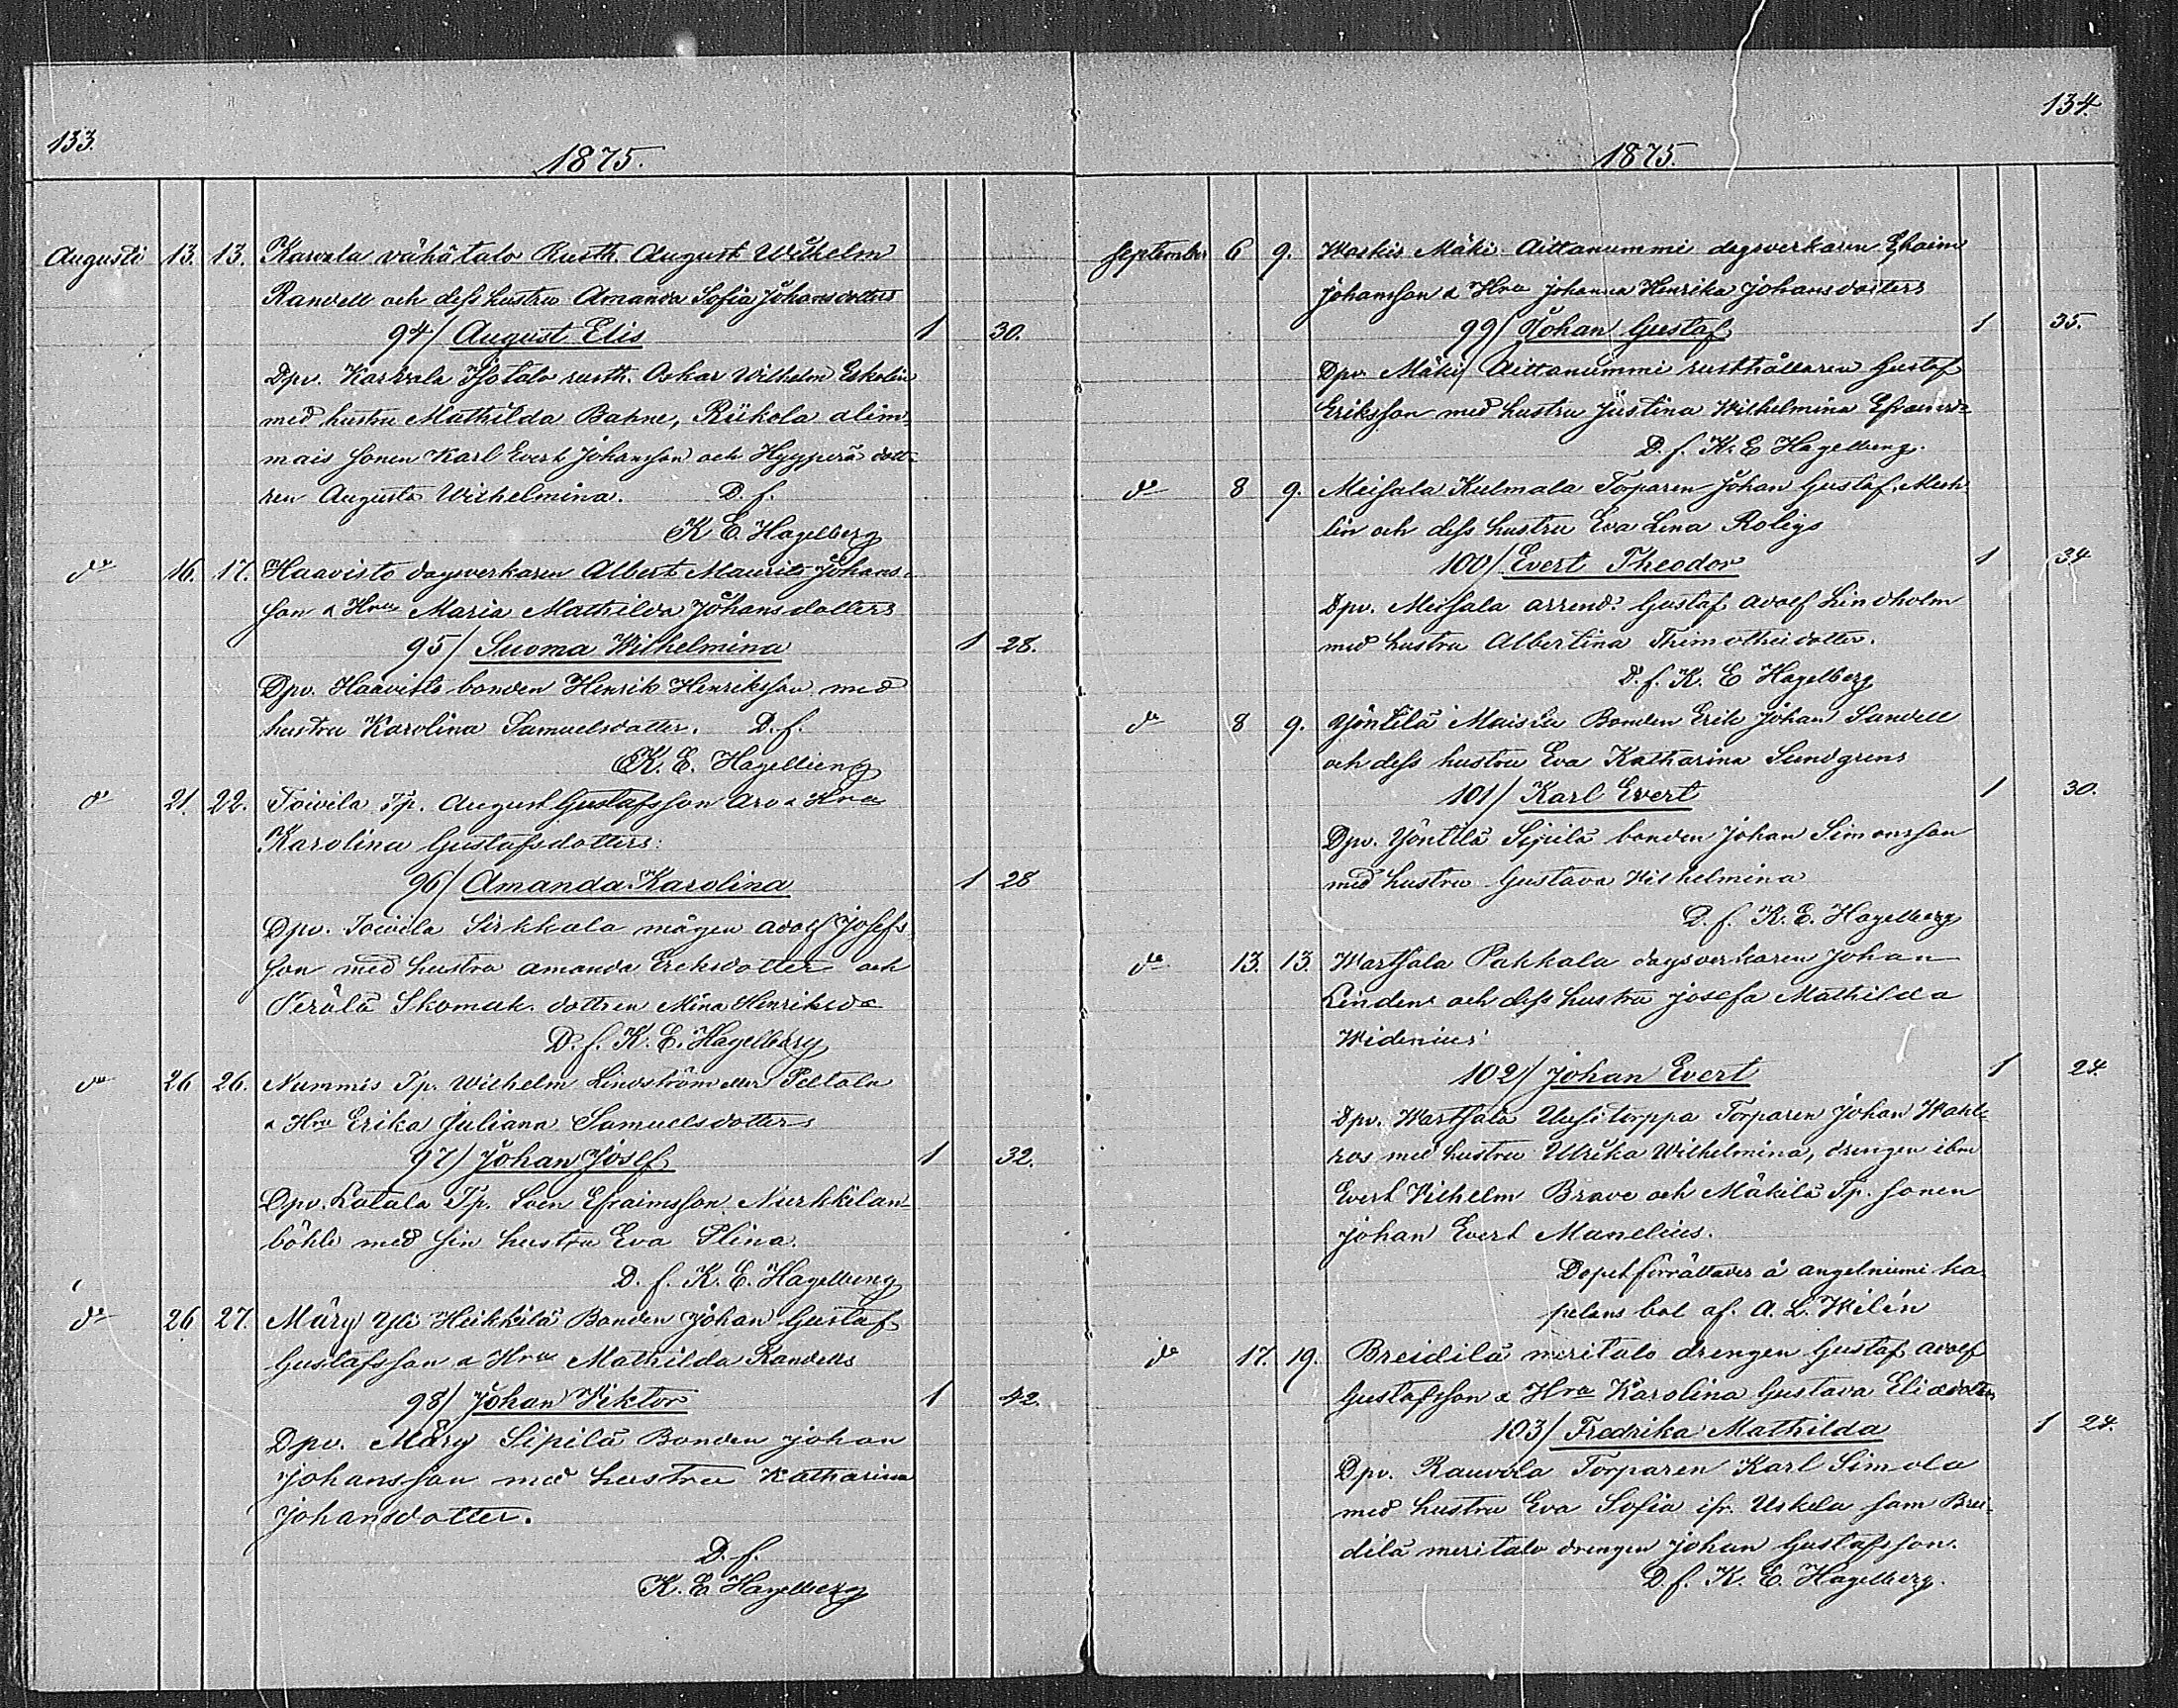 133.
1875.
Augusti 13. 13. Karvala vähätalo Rusth. August Wilhelm
Randell och dess hustru Amanda Sofia Johansdotters
94/ August Elis 1 30.
Dpv. Karvala Isotalo rusth. Oskar Wilhelm Eskolin
med hustru Mathilda Bahne, Riikola alim¬
mais sonen Karl Evert Johansson och Hyyperä dott¬
ren Augusta Wilhelmina. D. f.
K E. Hagelberg
do 16. 17. Haavisto dagsverkaren Albert Maurits Johans¬
son & Hru Maria Mathilda Johansdotters
95/ Suoma Wilhelmina 1 28.
Dpv. Haavisto bonden Henrik Henriksson med
hustru Karolina Samuelsdotter. D. f.
K. E. Hagelberg
do 21. 22. Toivila Tp. August Gustafsson Aro & Hru
Karolina Gustafsdotters:
96/ Amanda Karolina 1 28
Dpv. Toivila Sirkkala mågen Adolf Josefs
son med hustru Amanda Eriksdotter och
Perälä Skomak. dottren Mina Henriksd=
D. f. K. E. Hagelberg
do 26 26. Nummis Tp. Wilhelm Lindström eller Peltola
& Hru Erika Juliana Samuelsdotters
97/ Johan Josef 1 32.
Dpv. Latala Tp. Sven Efraimsson Nurkkilan¬
böhle med sin hustru Eva Plina.
D. f. K. E. Hagelberg
do 26 27. Märy Yli Heikkilä Bonden Johan Gustaf
Gustafsson & Hru Mathilda Randells
98/ Johan Viktor 1 42.
Dpv. Märy Sipilä Bonden Johan
Johansson med hustru Katharina
Johansdotter.
D. f.
K. E Hagelberg
134.
1875.
September 6 9. Waskis Mäki Aittanummi dagsverkaren Efraim
Johansson & Hru Johanna Henrika Johansdotters
99/ Johan Gustaf 1 35.
Dpv Mäki Aittanummi rusthållaren Gustaf
Eriksson med hustru Justina Wilhelmina Efraimsd=
D. f. K. E Hagelberg.
do 8 9. Meisala Kulmala Torparen Johan Gustaf Meh¬
lin och dess hustru Eva Lena Roligs
100/ Evert Theodor 1 34
Dpv. Meisala arrend. Gustaf Adolf Lindholm
med hustru Albertina Thimotheidotter.
D. f. K. E Hagelberg
do 8 9. Yöntilä Maisia Bonden Erik Johan Sandell
och dess hustru Eva Katharina Sundgrens
101/ Karl Evert 1 30.
Dpv. Yöntilä Sipilä bonden Johan Simonsson
med hustru Gustava Wilhelmina
D. f. K. E. Hagelberg
do 13. 13. Wartsala Pakkala dagsverkaren Johan
Linden och dess hustru Josefa Mathilda
Widenius
102/ Johan Evert 1 24.
Dpv. Wartsala Uusitorppa Torparen Johan Wahl¬
ros med hustru Ulrika Wilhelmina, drengen ibm
Evert Vilhelm Brave och Mäkilä Tp. sonen
Johan Evert Manelius.
Dopet förrättades å Angelniemi ka¬
pelans bol af. A. L. Wilén
do 17. 19. Breidilä meritalo drengen Gustaf Adolf
Gustafsson & Hru Karolina Gustava Eliædotter
103/ Fredrika Mathilda 1 24.
Dpv. Rauvola Torparen Karl Simola
med hustru Eva Sofia ifr. Uskela sam Brei¬
dilä meritalo drengen Johan Gustafsson.
D. f. K. E. Hagelberg.